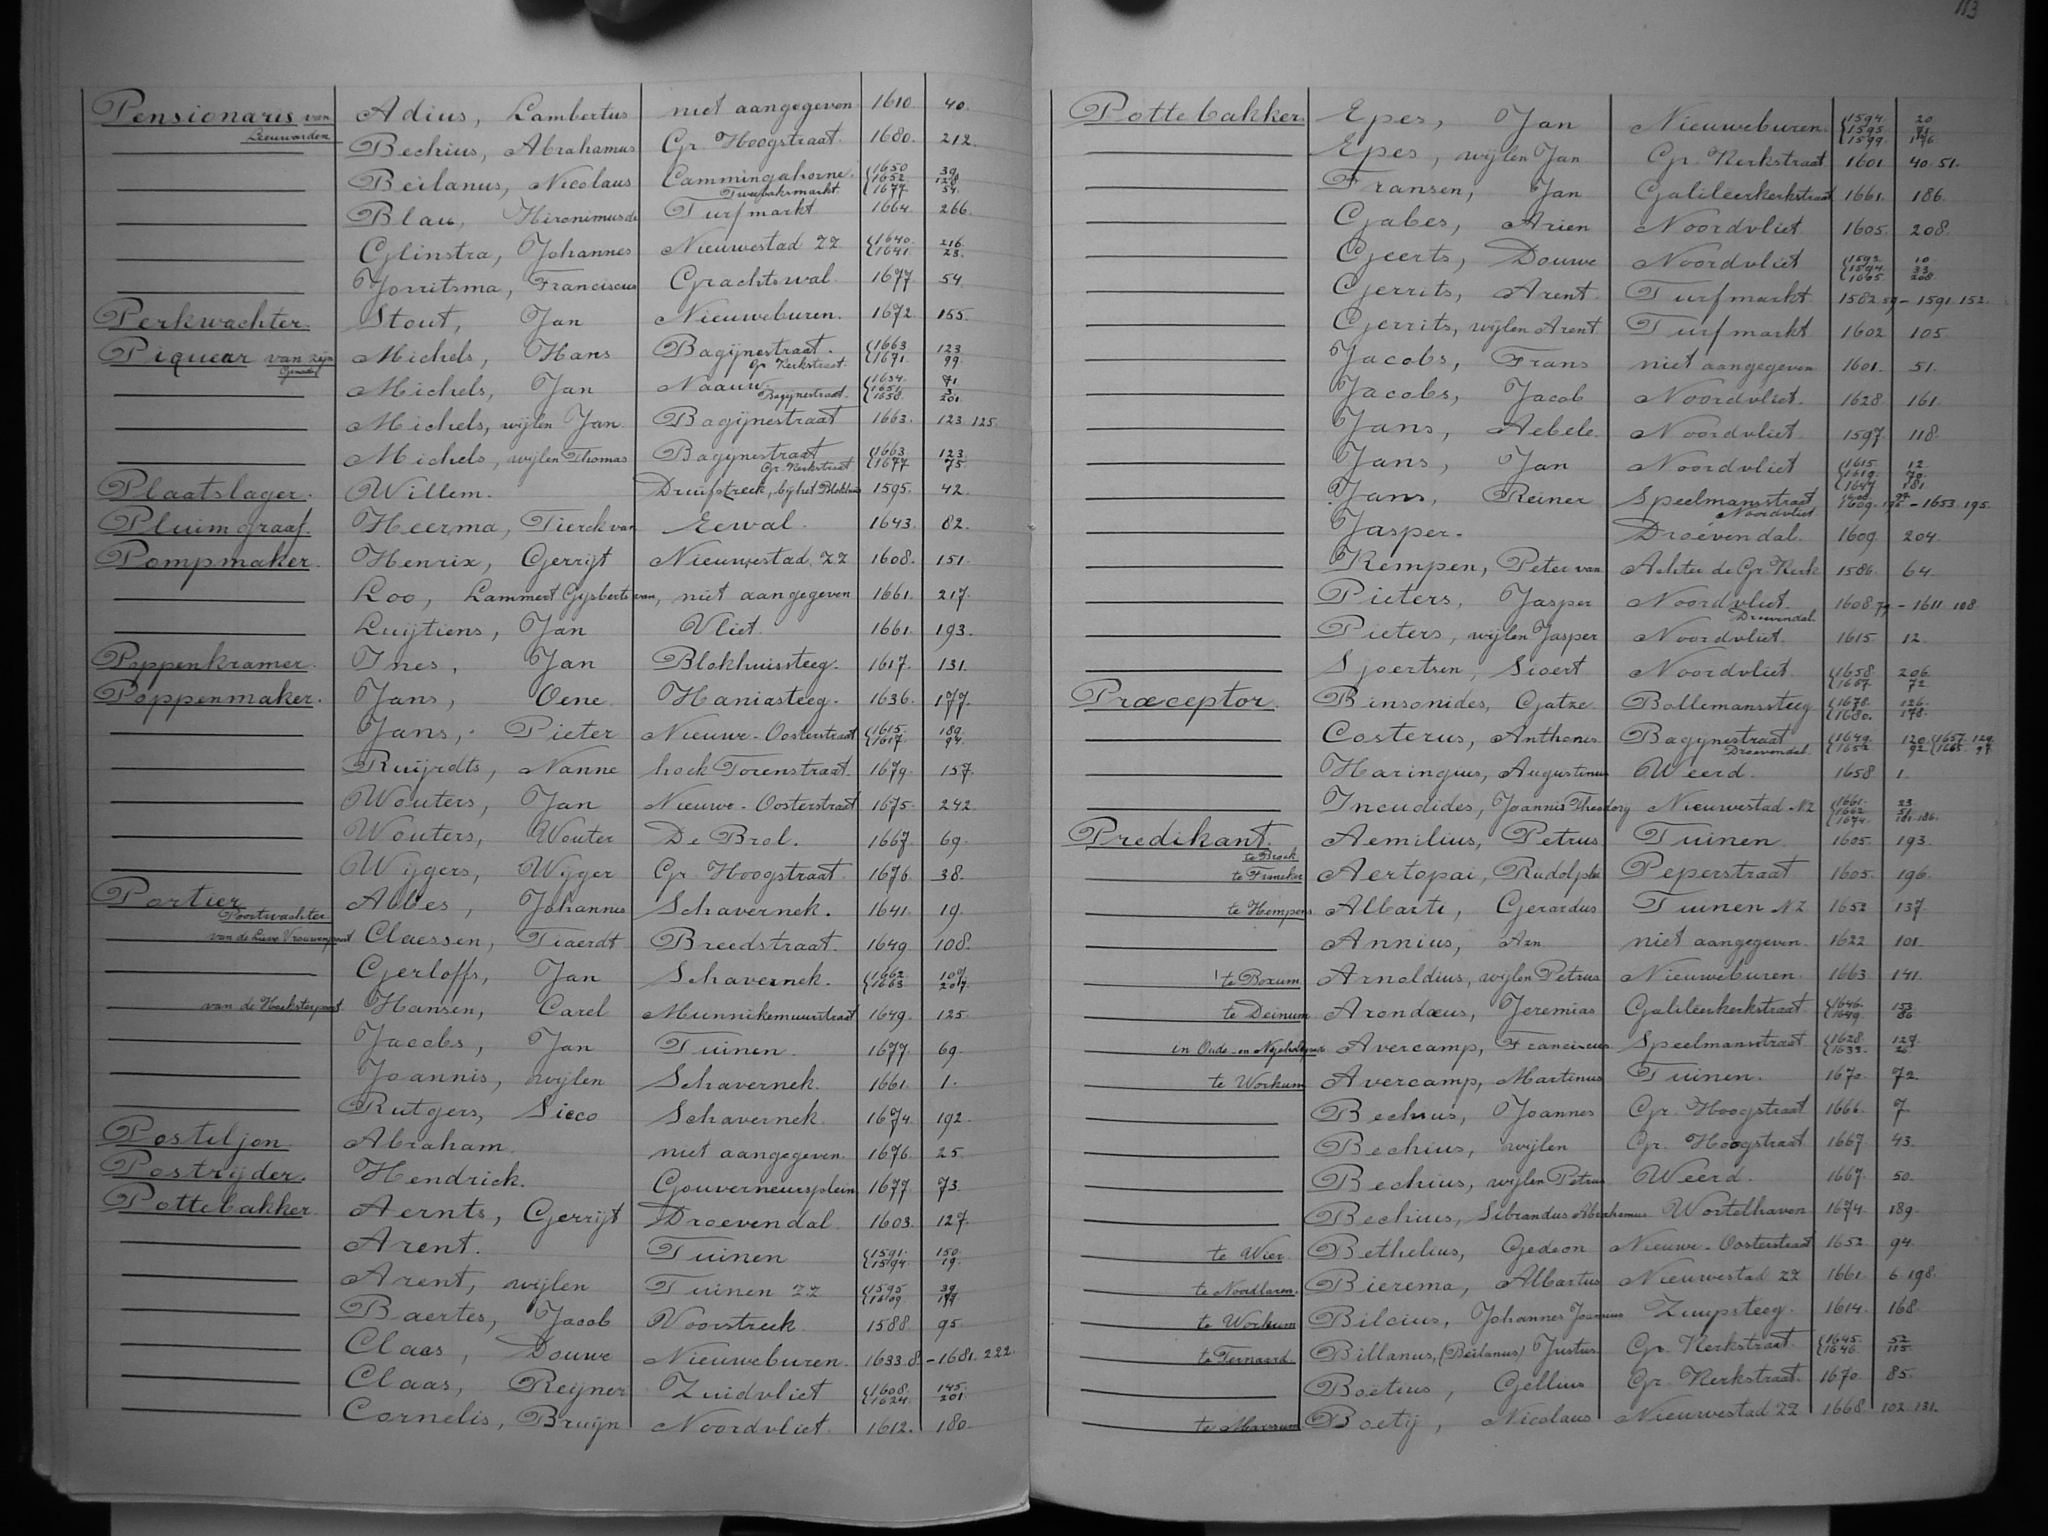 113
Pensionaris van Leeuwarden Adius, Lambertus niet aangegeven 1610 40.
Bechius, Abrahamus Gr. Hoogstraat. 1680. 212.
Beilanus, Nicolaus Cammingahorne. Tweebaksmarkt 1650 1652 1677 39 128 54.
Blau, Hieronimus de Turfmarkt 1664. 266.
Glinstra, Johannes Nieuwestad ZZ 1640. 1641. 216. 23.
Jorritsma, Franciscus Grachtswal 1677 54.
Perkwachter. Stout, Jan Nieuweburen. 1672. 155.
Piqueur van zijn Michels, Hans Bagijnestraat. Gr. Kerkstraat. 1663. 1671. 123 99.
Michels, Jan Naauw Bagijnestraat. 1658. 71 201.
Michels, wijlen Jan. Bagijnestraat 1663. 123. 125.
Michels, wijlen Thomas Bagijnestraat Gr. Kerkstraat 1663. 1677 123. 75.
Plaatslager. Willem. Druifstreek, bij het Blokhuis 1595. 42.
Pluimgraaf. Heerma, Tierck van Eewal. 1643. 82.
Pompmaker. Henrix, Gerrijt Nieuwestad, ZZ 1608. 151.
Loo, Lammert Gysberts van, niet aangegeven 1661. 217.
Luijtiens, Jan Vliet. 1661. 193.
Poppenkramer. Ines, Jan Blokhuissteeg. 1617. 131.
Poppenmaker. Jans, Oene. Haniasteeg. 1636. 177.
Jans, Pieter Nieuwe-Oosterstraat 1615. 1617. 189. 94.
Ruijrdts, Nanne hoek Torenstraat. 1679. 157.
Wouters, Jan Nieuwe-Oosterstraat 1675. 242.
Wouters, Wouter De Brol. 1667. 69.
Wijgers, Wijger Gr. Hoogstraat. 1676. 38.
Portier Poortwachter Abbes, Johannes Schavernek. 1641. 19.
van de Lieve Vrouwenpoort Claessen, Tiaerdt Breedstraat. 1649. 108.
Gerloffs, Jan Schavernek. 1662. 1663. 107 207.
van de Hoeksterpoort Hansen, Carel Munnikemuurstraat 1649. 125.
Jacobs, Jan Tuinen. 1677. 69.
Joannis, wijlen Schavernek. 1661. 1.
Rutgers, Sicco Schavernek. 1674. 192.
Posteljon. Abraham. niet aangegeven. 1676. 25.
Postrijder. Hendrick. Gouverneursplein 1677. 73.
Pottebakker. Aernts, Gerrijt Droevendal. 1603. 127.
Arent. Tuinen 1591. 1594. 150. 19.
Arent, wijlen Tuinen ZZ 1595 1609 39
Baertes, Jacob Voorstreek 1588. 95.
Claas, Douwe Nieuweburen. 1633. 8. - 1681. 222.
Claas, Reijner Zuidvliet 1608. 1624. 145. 201.
Cornelis, Bruijn Noordvliet. 1612. 180.
Pottebakker. Epes, Jan Nieuweburen. 1594. 1595 1599. 20 71 196.
Epes, wijlen Jan Gr. Kerkstraat. 1601 40. 51.
Fransen, Jan Galileerkerkstraat 1661. 186.
Gabes, Arien Noordvliet 1605. 208.
Geerts, Douwe Noordvliet 1592. 1594. 1605. 10 33 208
Gerrits, Arent. Turfmarkt 1582. 59 - 1591. 152.
Gerrits, wijlen Arent Turfmarkt 1602 105.
Jacobs, Frans niet aangegeven 1601. 51.
Jacobs, Jacob Noordvliet. 1628 161.
Jans, Aebele. Noordvliet. 1597 118.
Jans, Jan Noordvliet 1615. 1619. 1647 12. 79. 181.
Jans, Reiner Speelmansstraat Noordvliet 1609. - 1653. 195.
Jasper. Droevendal. 1609. 204.
Kempen, Peter van Achter de Gr. Kerk 1586. 64.
Pieters, Jasper Noordvliet. Droevendal. 1608. 79 - 1611. 108
Pieters, wijlen Jasper Noordvliet. 1615 12.
Sjoertsen, Sioert Noordvliet. 1658. 1667. 206. 72.
Præceptor. Binsonides, Gatze Bollemanssteeg 1678. 1680. 126. 178.
Costerus, Anthonis Bagijnestraat Droevendal. 1649. 1652. 120. 92 1657. 129. 1665. 97.
Haringius, Augustinus Weerd. 1658. 1.
Incudides, Joannis Theodory Nieuwestad NZ 1661. 1662. 1674. 23. 51. 181. 186.
Predikant. te Broek Aemilius, Petrus Tuinen. 1605. 193.
te Franeker Aertopai, Rudolphi Peperstraat 1605. 196.
te Hempens Albarti, Gerardus Tuinen NZ 1652 137
Annius, Arn niet aangegeven. 1622 101.
te Boxum Arnoldius, wijlen Petrus Nieuweburen. 1663 141.
te Deinum Arondæus, Jeremias Galileerkerkstraat 1646. 1649. 153 86.
in Oude- en Nijeholtpade Avercamp, Franciscus Speelmansstraat 1628. 1633. 127. 26.
te Workum Avercamp, Martinus Tuinen. 1670. 72.
Bechius, Joannes Gr. Hoogstraat 1666. 7.
Bechius, wijlen Gr. Hoogstraat. 1667. 43.
Bechius, wijlen Petrus Weerd. 1667. 50.
Bechius, Sibrandus Abrahamus Wortelhaven 1674. 189.
te Wier. Bethelius, Gedeon Nieuwe-Oosterstraat 1652 94.
te Noordlaren. Bierema, Albartus Nieuwestad ZZ 1661. 6. 198.
te Workum Bilcius, Johannes Joannius Zuupsteeg. 1614. 168.
te Ternaard. Billanus, (Beilanus) Justus Gr. Kerkstraat. 1645. 1646. 52 115.
Boëtius, Gellius Gr. Kerkstraat. 1670. 85.
te Marssum Boëtij, Nicolaus Nieuwestad ZZ 1668. 102. 131.